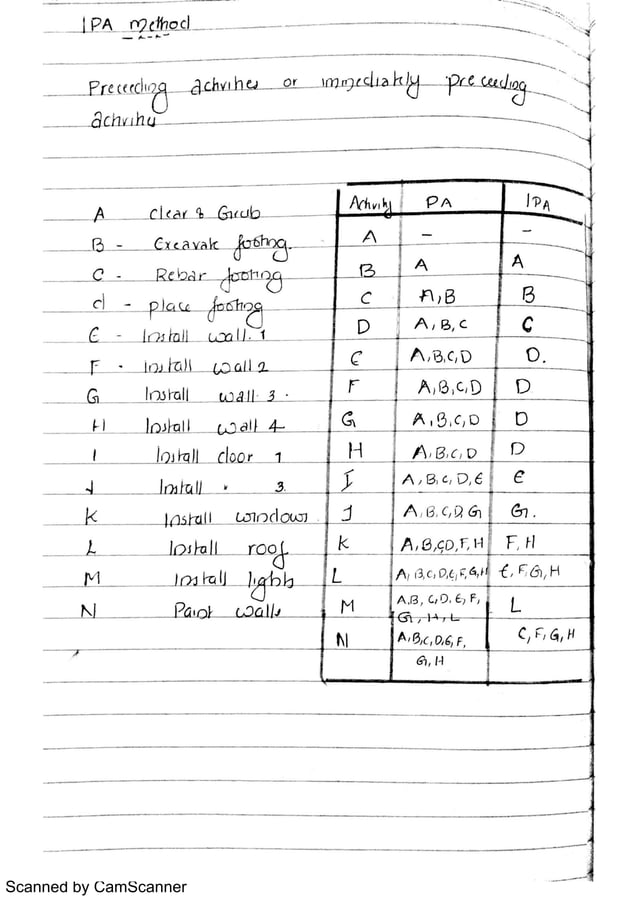 IPA Method
Preceeding activities or immediately preceeding
activity
A Clear & Grub
B - Excavate footing.
C - Rebar footing
d - place footing
E - Install wall. 1
F - Install wall 2
G Install wall 3.
H Install wall 4
I Install door 1
J Install " 3.
K Install windows
L Install roof
M Install lights
N Paint walls
Activity PA IPA
A - -
B A A
C A,B B
D A, B, C C
E A,B,C,D D.
F A,B,C,D D
G A,B,C,D D
H A,B,C,D D
I A,B,C,D,E E
J A,B,C,D,G G.
K A,B,C,D,F,H F,H
L A,B,C,D,E,F,G,H E,F,G,H
M A,B, C,D, E, F, L
G, H, L
N A,B,C,D,E,F, E,F,G,H
G, H
Scanned by CamScanner